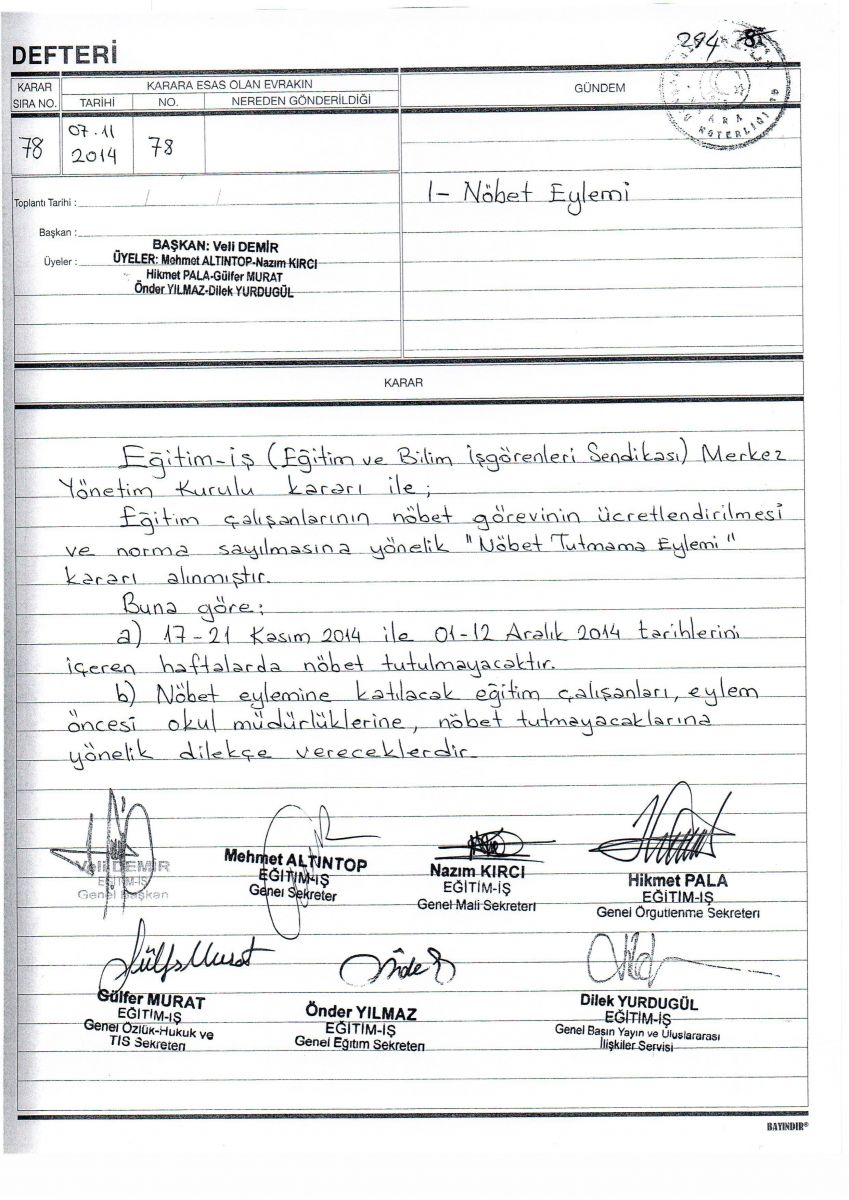 294
DEFTERİ
KARAR
SIRA NO.
KARARA ESAS OLAN EVRAKIN
TARİHİ
NO.
NEREDEN GÖNDERİLDİĞİ
GÜNDEM
78
07.11
2014
78
1- Nöbet Eylemi
Toplantı Tarihi : / /
Başkan :
BAŞKAN: Veli DEMİR
Üyeler :
ÜYELER: Mehmet ALTINTOP-Nazım KIRCI
Hikmet PALA-Gülfer MURAT
Önder YILMAZ-Dilek YURDUGÜL
KARAR
Eğitim-iş (Eğitim ve Bilim İşgörenleri Sendikası) Merkez
Yönetim Kurulu kararı ile ;
Eğitim çalışanlarının nöbet görevinin ücretlendirilmesi
ve norma sayılmasına yönelik "Nöbet Tutmama Eylemi"
kararı alınmıştır.
Buna göre;
a) 17-21 Kasım 2014 ile 01-12 Aralık 2014 tarihlerini
içeren haftalarda nöbet tutulmayacaktır.
b) Nöbet eylemine katılacak eğitim çalışanları, eylem
öncesi okul müdürlüklerine, nöbet tutmayacaklarına
yönelik dilekçe vereceklerdir.
Veli DEMİR
EĞİTİM-İŞ
Genel Başkan
Mehmet ALTINTOP
EĞİTİM-İŞ
Genel Sekreter
Nazım KIRCI
EĞİTİM-İŞ
Genel Mali Sekreteri
Hikmet PALA
EĞİTİM-İŞ
Genel Örgutlenme Sekreteri
Gülfer Murat
Gülfer MURAT
EĞİTİM-İŞ
Genel Özlük-Hukuk ve
TİS Sekreteri
Önder
Önder YILMAZ
EĞİTİM-İŞ
Genel Eğitim Sekreteri
Dilek YURDUGÜL
EĞİTİM-İŞ
Genel Basın Yayın ve Uluslararası
İlişkiler Servisi
BAYINDIR®